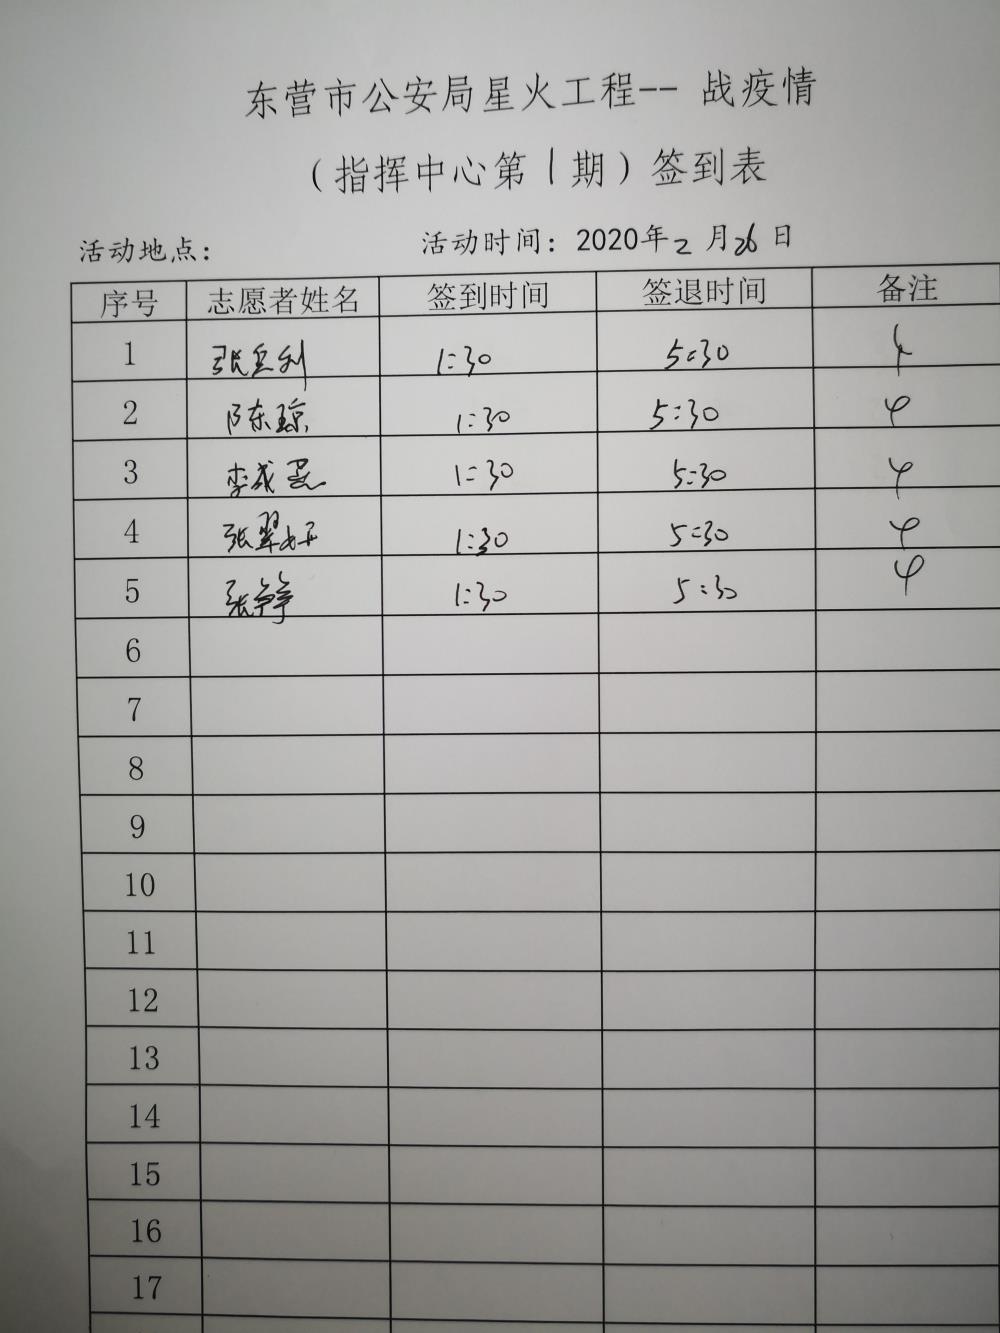 东营市公安局星火工程-- 战疫情
（指挥中心第1期）签到表
活动地点： 活动时间：2020年2月26日
序号 志愿者姓名 签到时间 签退时间 备注
1 1:30 5:30 4
2 陈琼 1:30 5:30 4
3 李成 1:30 5:30 4
4 张翠妍 1:30 5:30 4
5 张铮 1:30 5:30 4
6
7
8
9
10
11
12
13
14
15
16
17